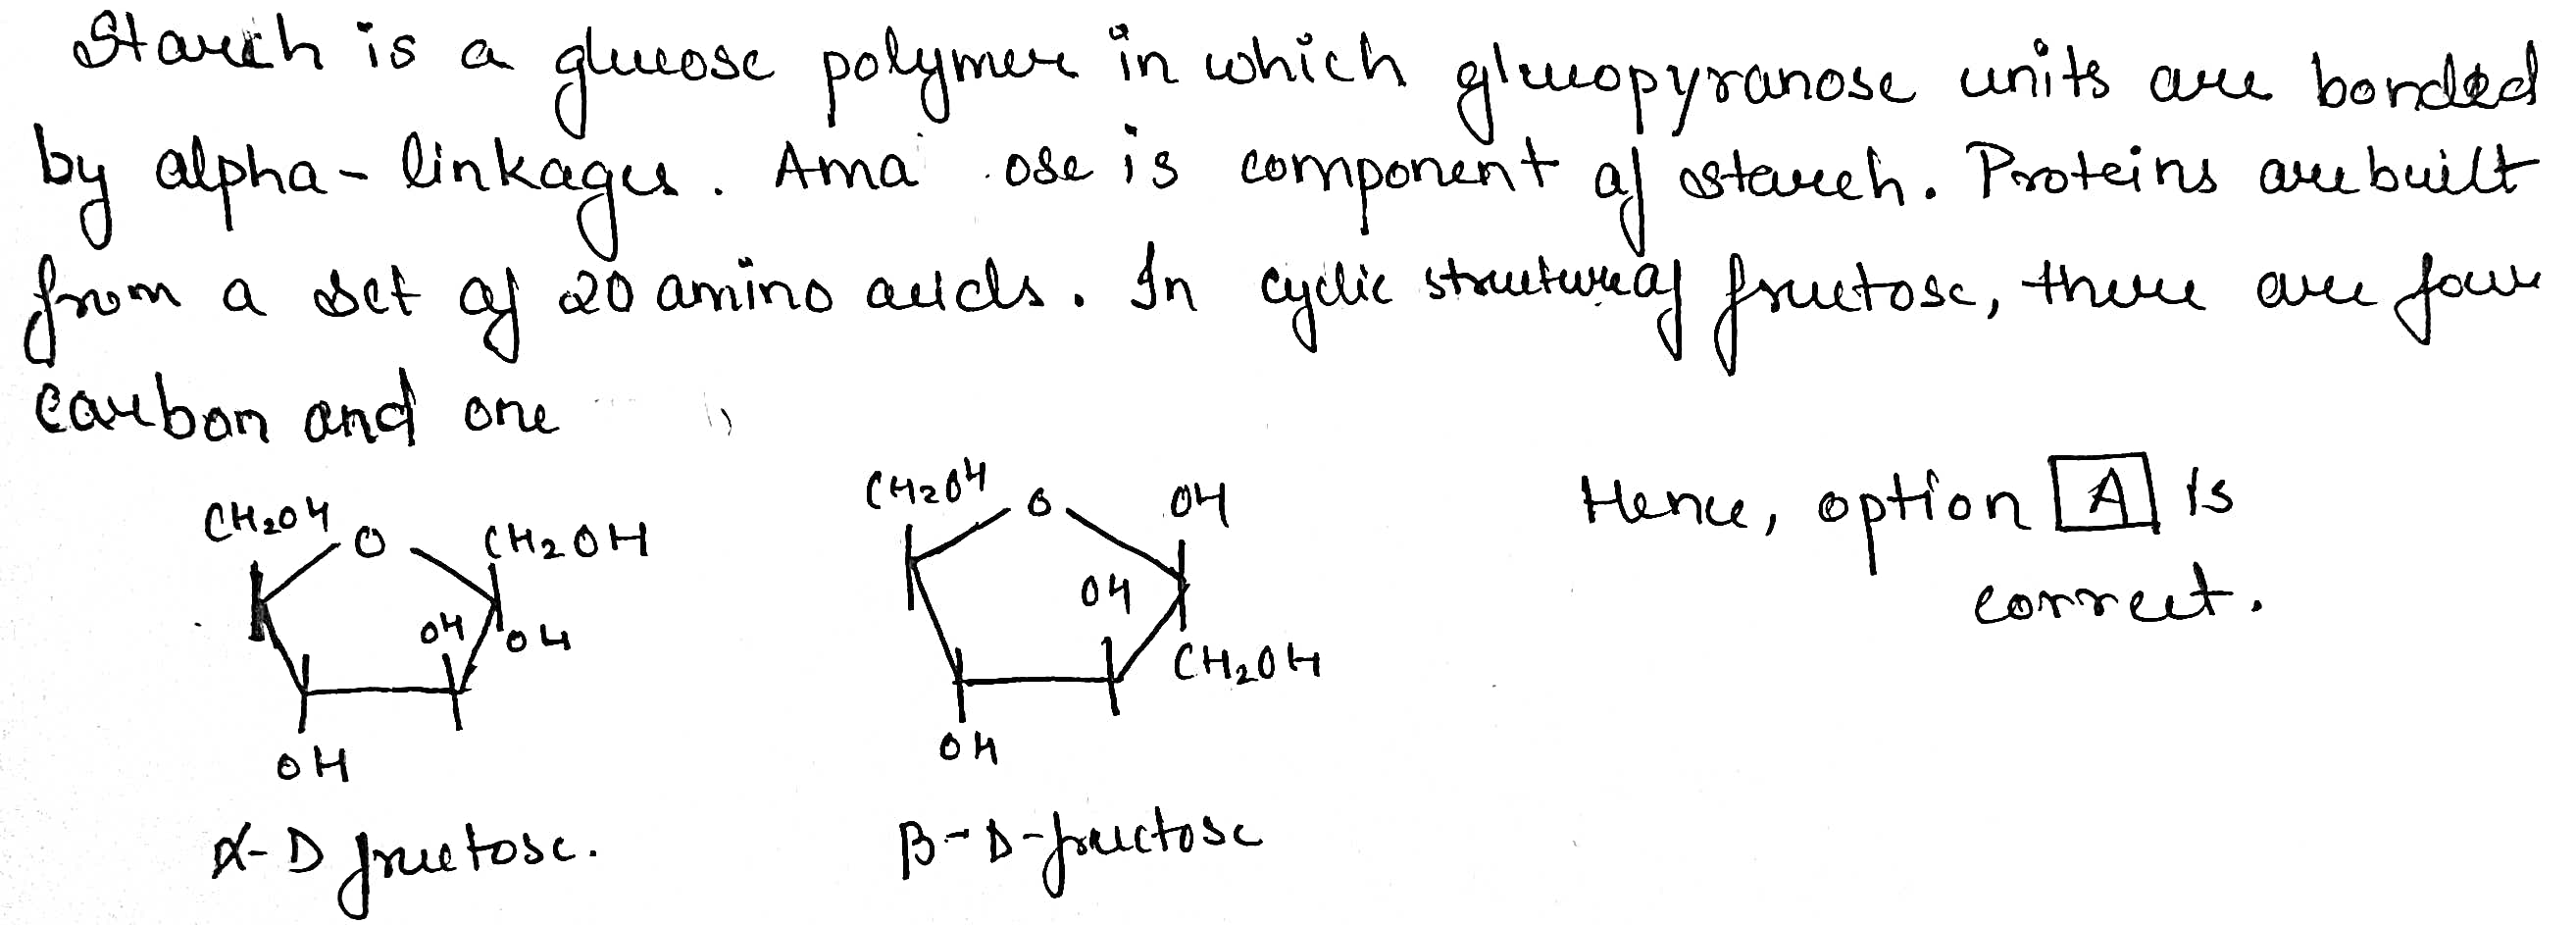 Starch is a glucose polymer in which glucopyranose units are bonded
by alpha-linkages. Ama ose is component of starch. Proteins are built
from a set of 20 amino acids. In cyclic structure of fructose, there are four
carbon and one
CH2OH O CH2OH
OH OH
OH
α-D fructose.
CH2OH O OH
OH
CH2OH
OH
β-D-fructose
Hence, option A is
correct.